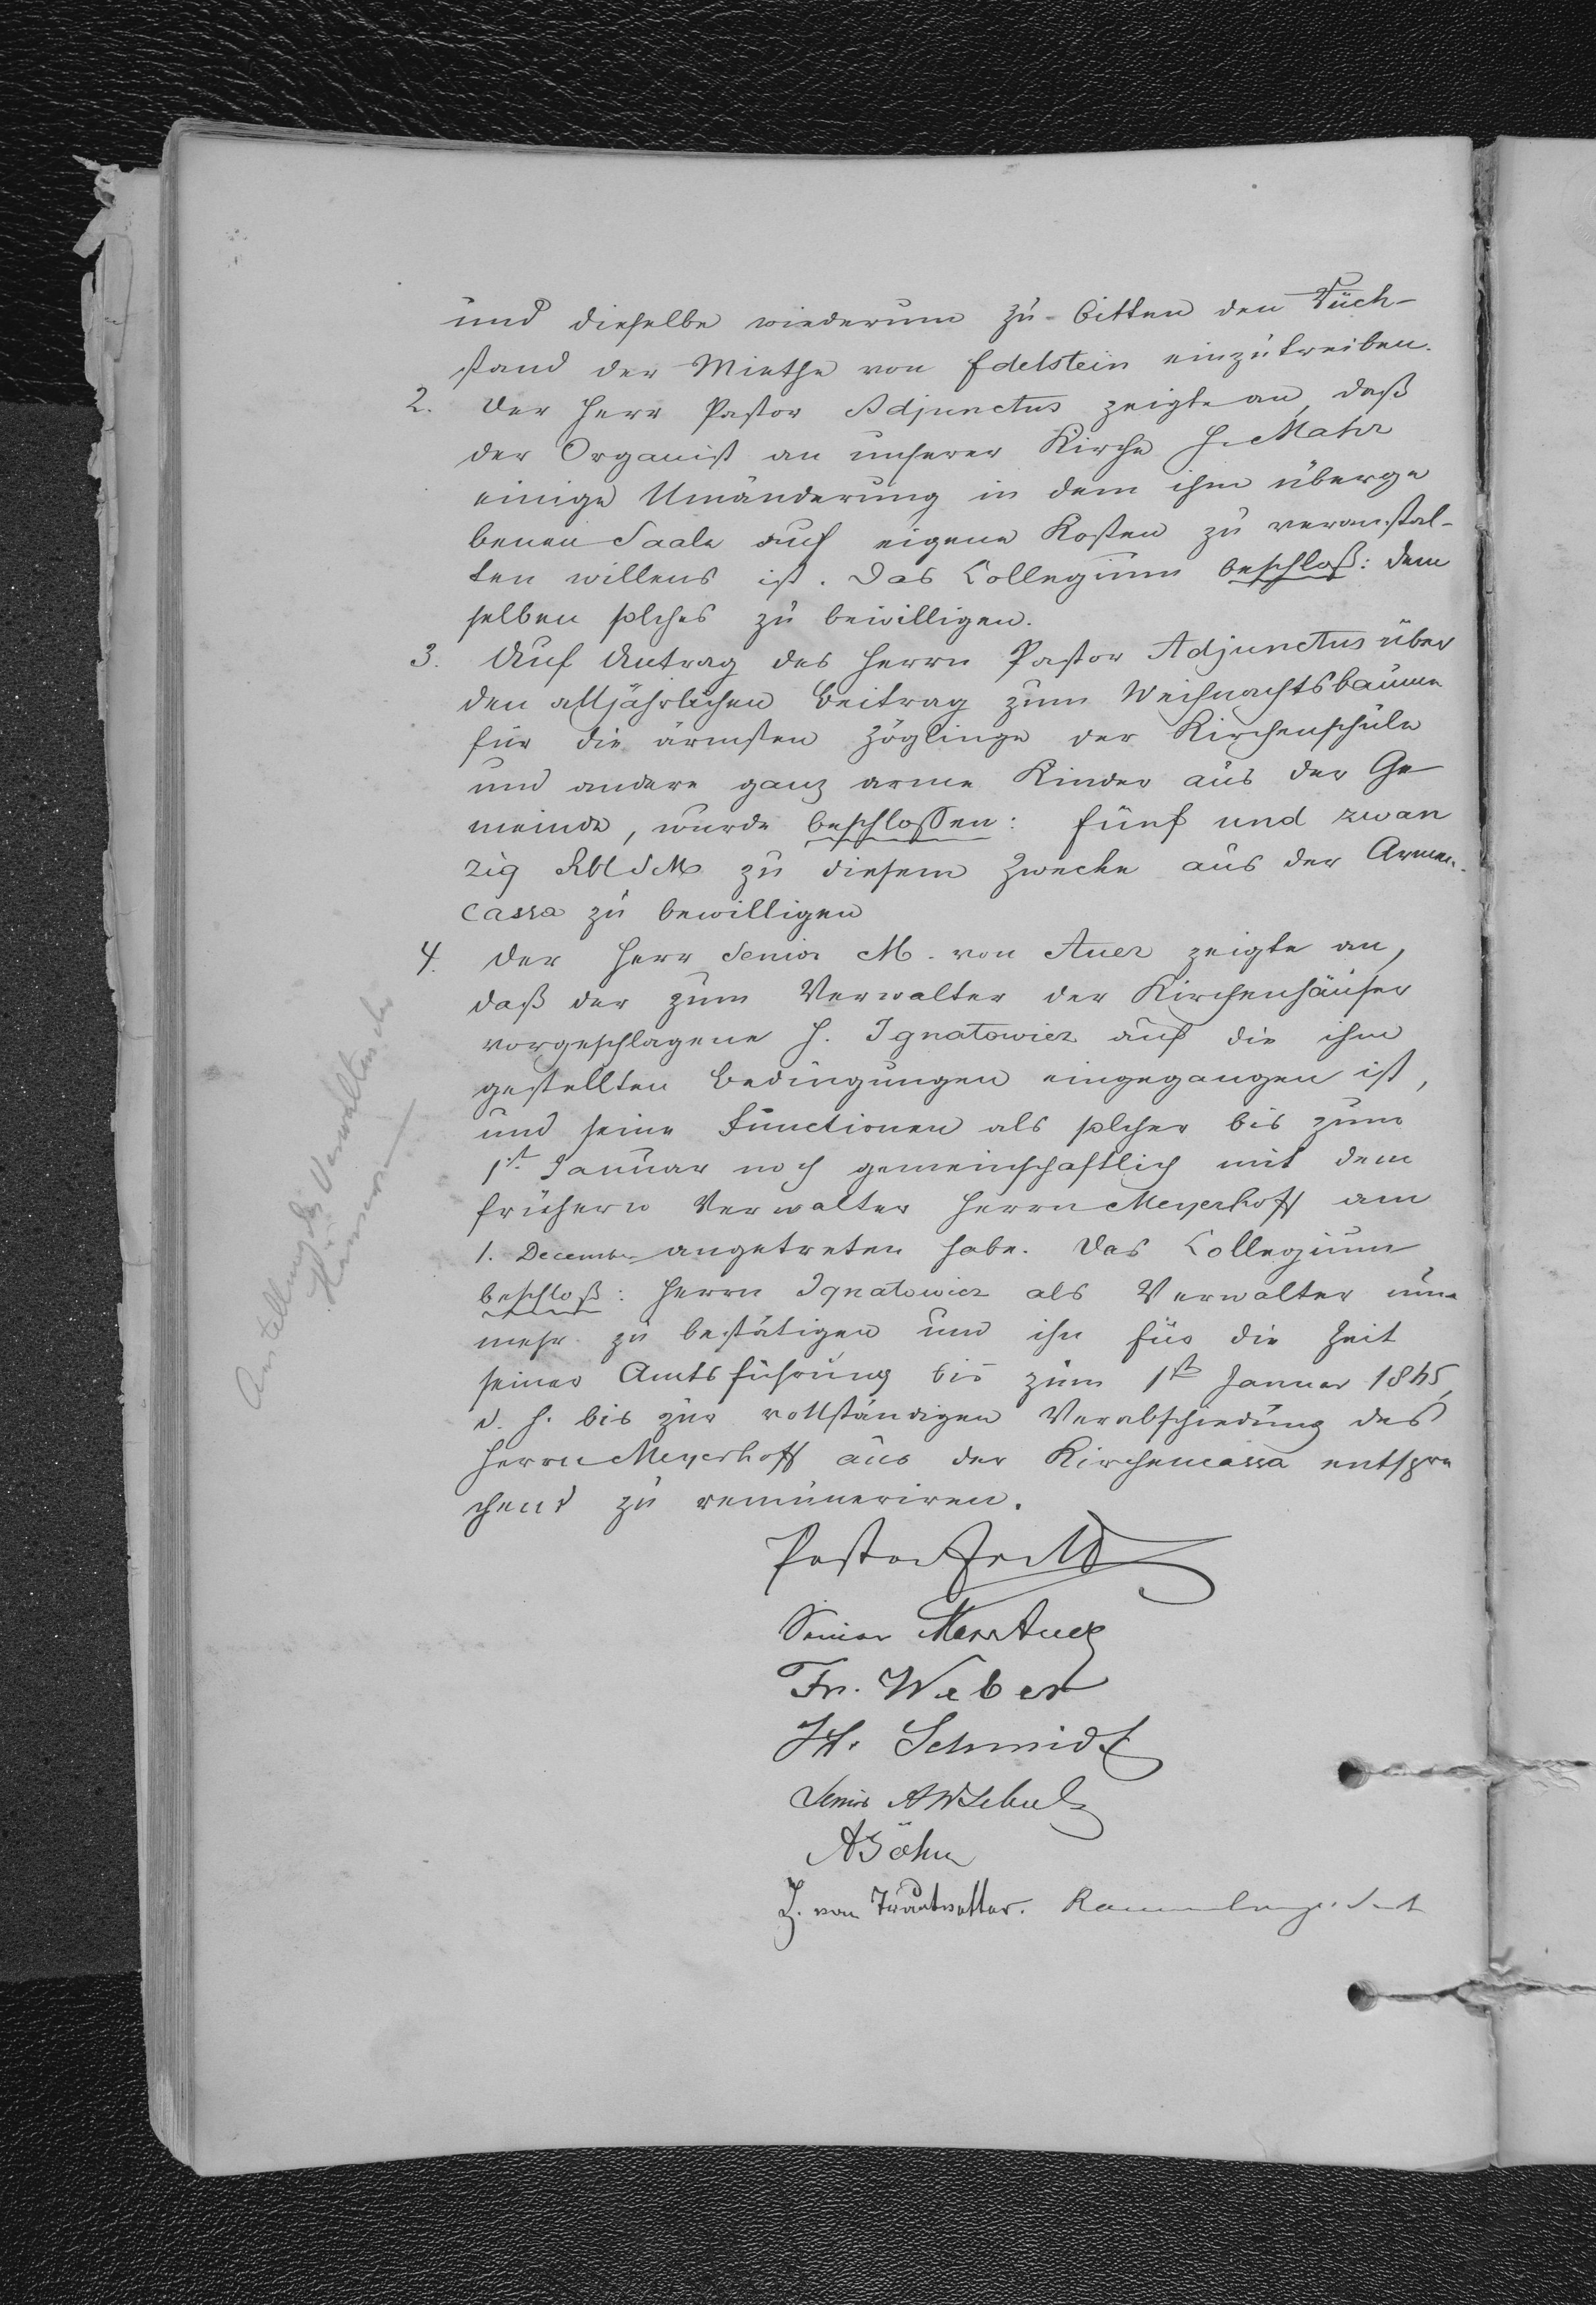 und dieselbe wiederum zu bitten den Rück-
stand der Miethe von Edelstein einzutreiben.
2. Der Herr Pastor Adjunctus zeigte an, daß
der Organist an unserer Kirche H. Mahr
einige Umänderung in dem ihm überge
benen Saale auf eigene Kosten zu veranstal-
ten willens ist. Das Collegium beschloß: dem
selben solches zu bewilligen.
3. Auf Antrag des Herrn Pastor Adjunctus über
den alljährlichen Beitrag zum Weihnachtsbaume
für die ärmsten Zöglinge der Kirchenschule
und andere ganz arme Kinder aus der Ge
meinde, wurde beschlossen: fünf und zwan
zig Rbl SM zu diesem Zwecke aus der Armen-
cassa zu bewilligen
4. Der Herr Senior M. von Auer zeigte an,
daß der zum Verwalter der Kirchenhäuser
vorgeschlagene H. Ignatowicz auf die ihm
gestellten Bedingungen eingegangen ist,
und seine Functionen als solcher bis zum
1st Januar noch gemeinschaftlich mit dem
frühern Verwalter Herrn Meyerhoff am
1. December angetreten habe. Das Collegium
beschloß: Herrn Ignatowicz als Verwalter nun
mehr zu bestätigen und ihn für die Zeit
seiner Amtsführung bis zum 1st Januar 1865,
d. h. bis zur vollständigen Verabschiedung des
Herrn Meyerhoff aus der Kirchencassa entspre
chend zu remuneriren.
Anstellung des Verwalters der
Häuser
Pastor
Senior M von Auer
Fr. Weber
H. Schmidt
Senior A W Schulz
A Böhm
von Trautvetter.